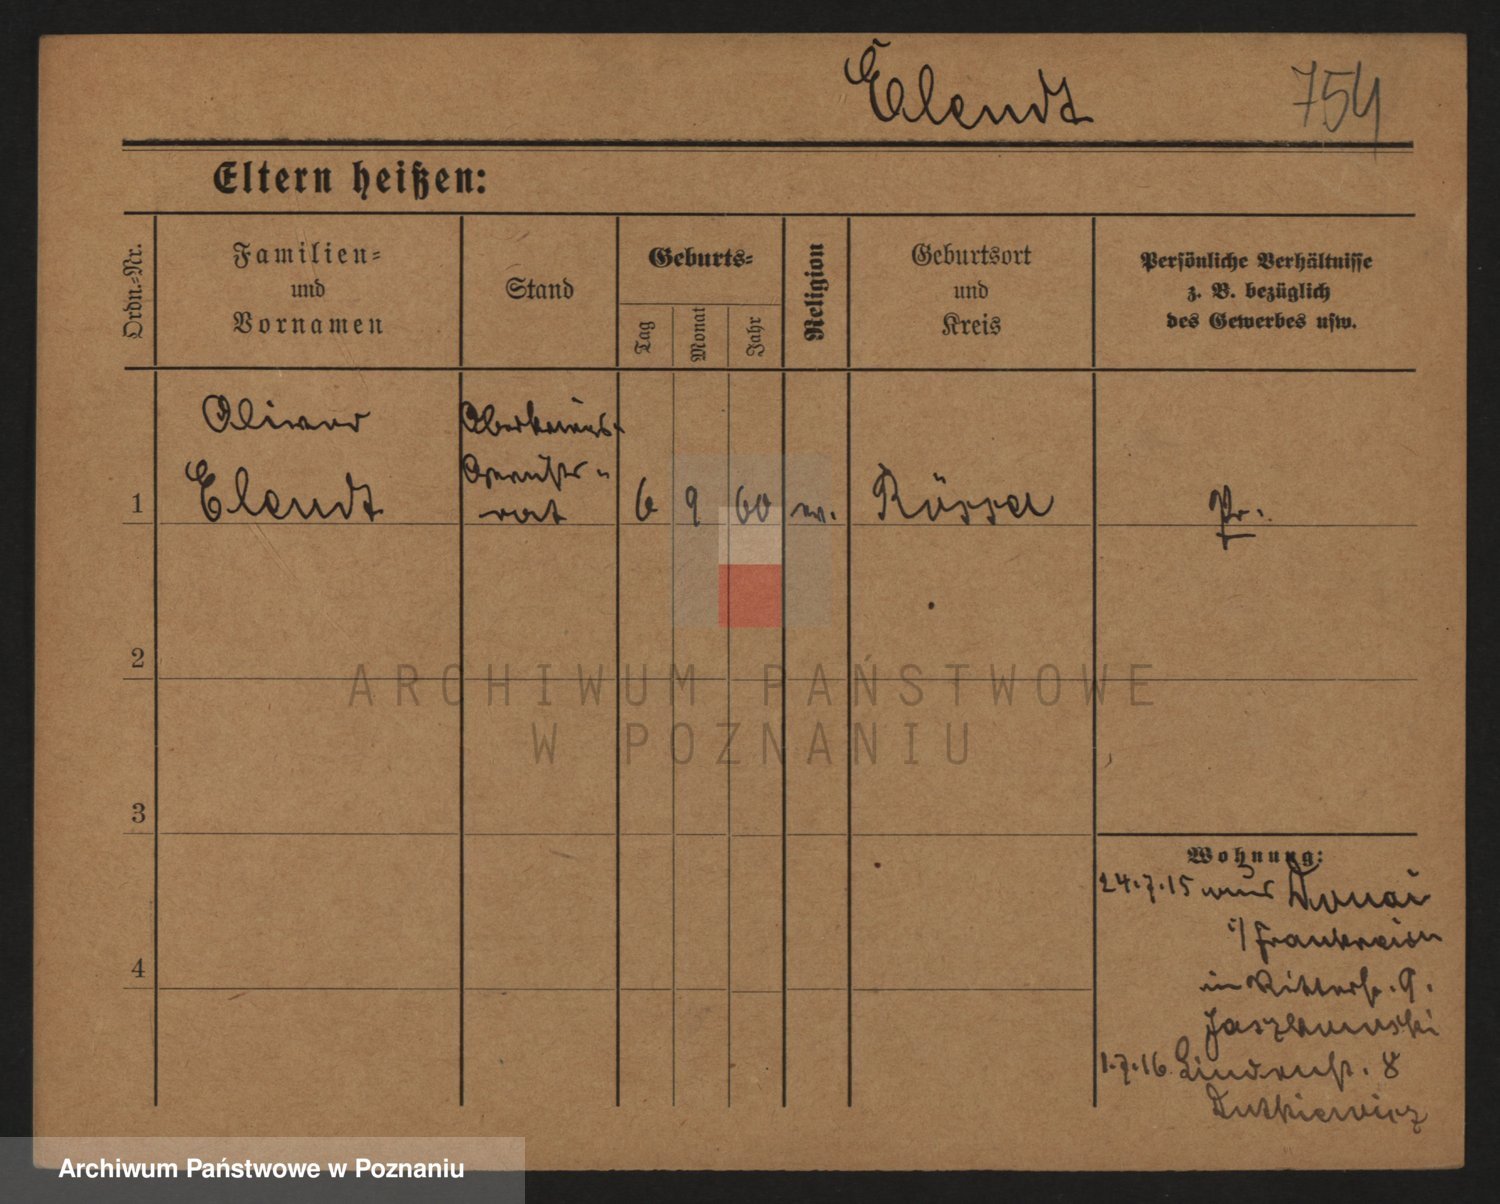 Elendt 754
Eltern heißen:
Ordn.-Nr.
Familien-
und
Vornamen
Stand
Geburts-
Tag
Monat
Jahr
Religion
Geburtsort
und
Kreis
Persönliche Verhältnisse
z. B. bezüglich
des Gewerbes usw.
Oberkriegs-
Elendt
1
rat
6 9 60 ev. Rössel Pr.
2
ARCHIWUM PAŃSTWOWE
W POZNANIU
3
Wohnung:
24.7.15 Douai
i/Frankreich
in Ritterstr. 9.
4
1.7.16 Lindenstr. 8
Dutkiewicz
Archiwum Państwowe w Poznaniu